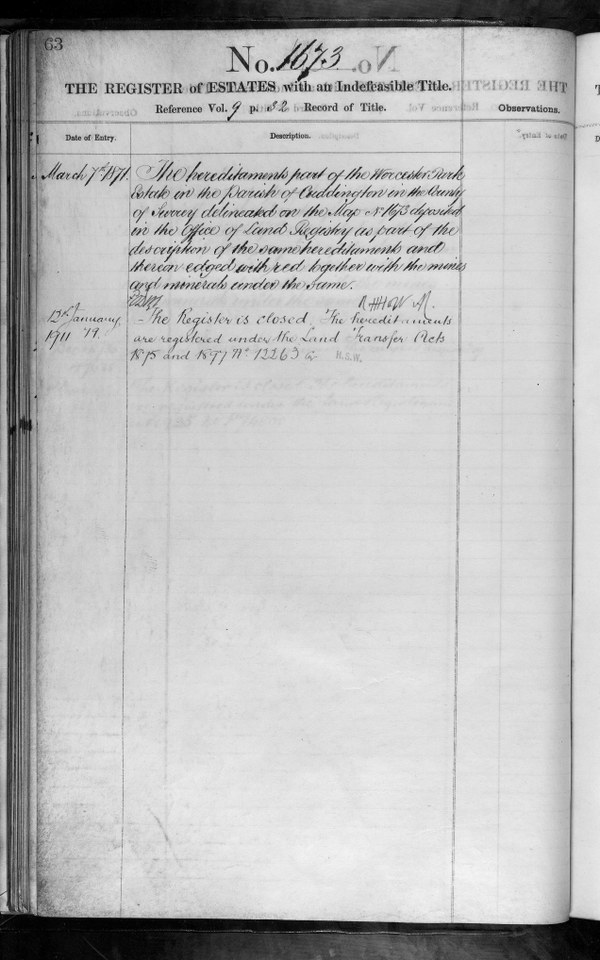 63
No. 1673
THE REGISTER of ESTATES with an Indefeasible Title.
Reference Vol. 9 p. 82 Record of Title.
Observations.
Date of Entry.
Description.
March 7th 1871. The hereditaments part of the Worcester Park
Estate in the Parish of Cuddington in the County
of Surrey delineated on the Map No 1673 deposited
in the Office of Land Registry as part of the
description of the same hereditaments and
thereon edged with red together with the mines
and minerals under the same.
12th January, 1911 The Register is closed, The hereditaments
are registered under the Land Transfer Acts
1875 and 1897 No 12263